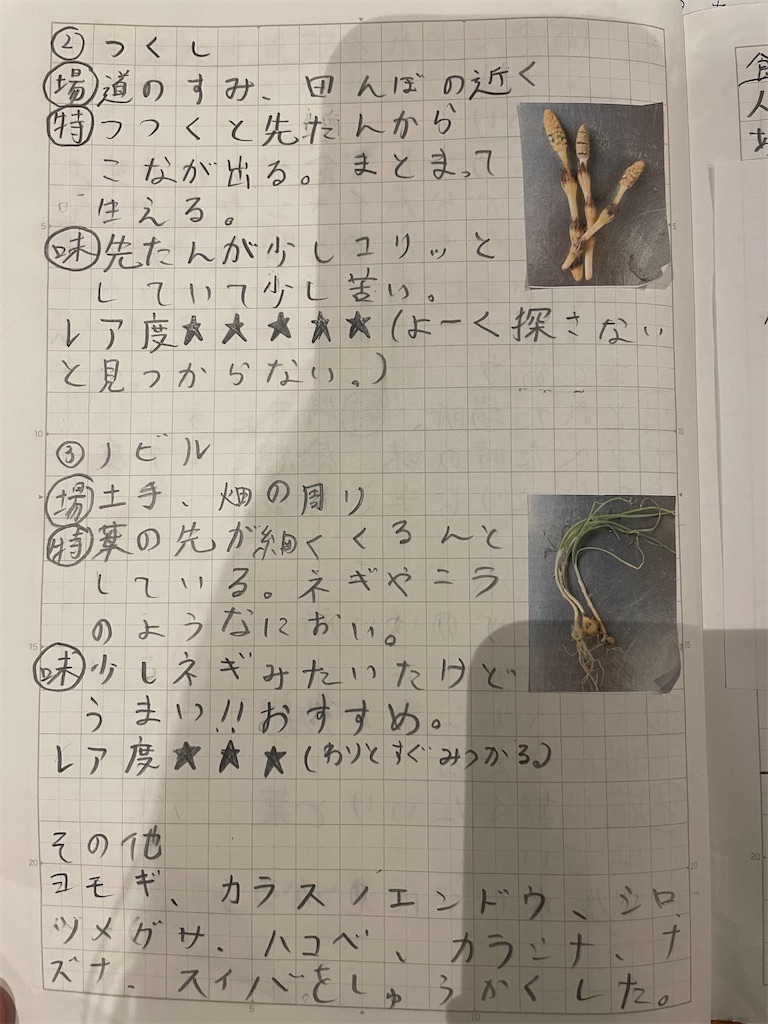 ② つくし
場 道のすみ、田んぼの近く
特 つつくと先たんから
こなが出る。まとまって
生える。
味 先たんが少しコリッと
していて少し苦い。
レア度★★★★★(よーく探さない
と見つからない。)
③ ノビル
場 土手、畑の周り
特 葉の先が細くくるんと
している。ネギやニラ
のようなにおい。
味 少しネギみたいたけど
うまい!!おすすめ。
レア度★★★(わりとすぐみつかる。)
その他
ヨモギ、カラスノエンドウ、シロ
ツメグサ、ハコベ、カラシナ、ナ
ズナ、スイバをしゅうかくした。
5
10
15
20
5
10
15
20
5
10
20
食
人